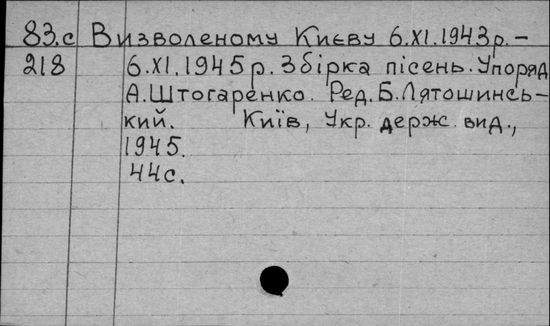 83.с Визволеному Києву 6.XI.1943р.-
218 6.XI.1945р. Збірка пісень. Упоряд
А.Штогаренко. Ред. Б.Лятошинсь-
кий. Київ, Укр. держ. вид.,
1945.
44с.